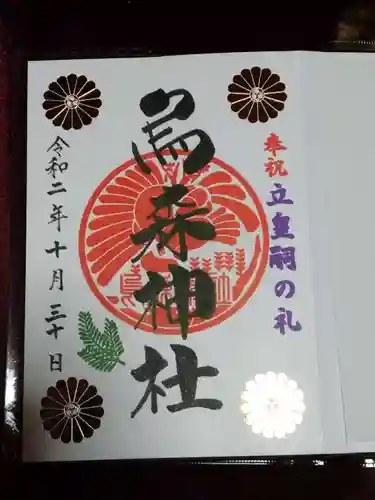 奉祝
立皇嗣の礼
烏森神社
令和二年十月三十日